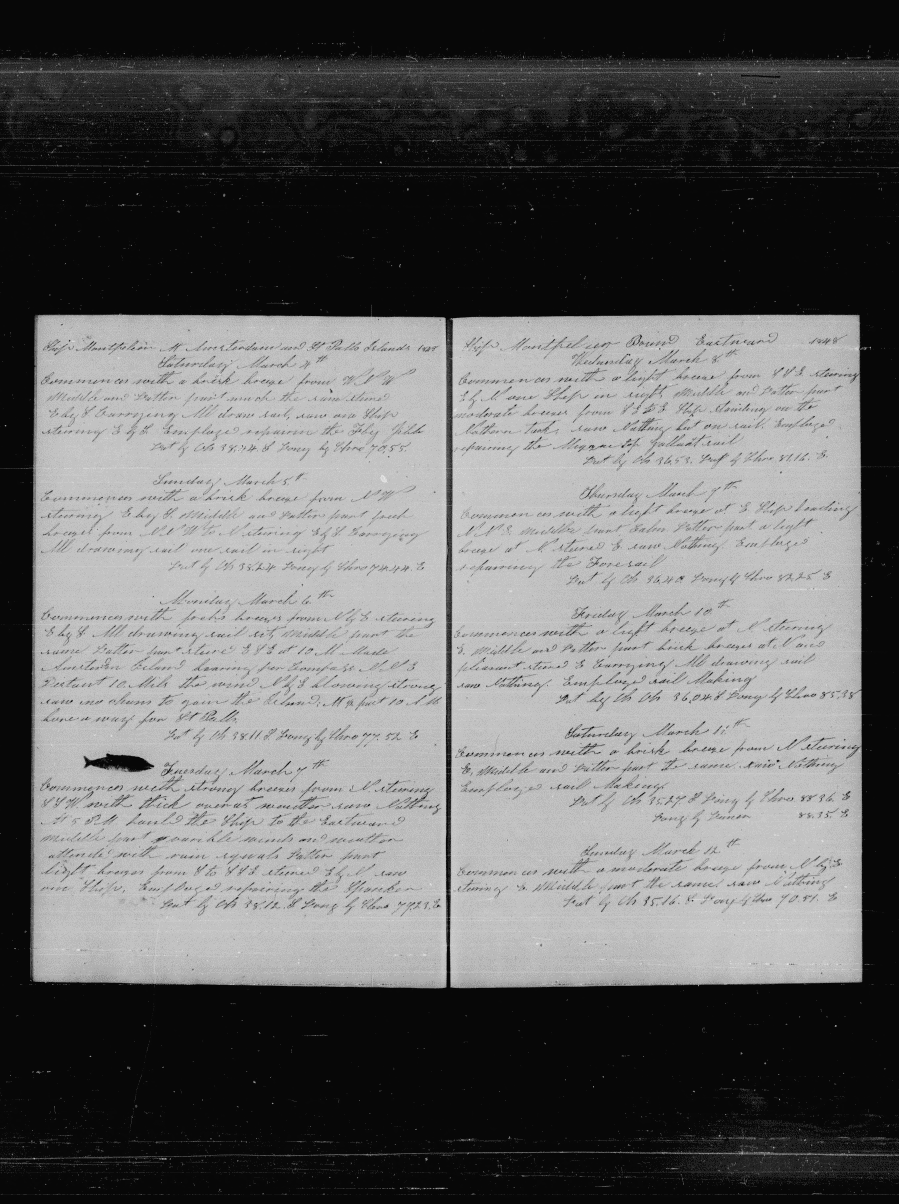 Ship Montpelier At Amsterdam and St Palls Islands 1848
Saturday March 4th
Commences with a brisk breeze from W.N.W
Middle and Latter part much the same stered
E by S Carrying All draw sail, saw one Ship
steering E by S. Employed repairin the Flig Jibb
Lat by Ob 38.44 S Long by Chro 70.55
Sunday March 5th
Commences with a brisk breeze from N W
steering E by S Middle and Latter part fresh
breezes from N.N.W to N steering E by S Carrying
All drawing sail one sail in sight
Lat by Ob 38.24 Long by Chro 74.44 E
Monday March 6th
Commences with fresh breezes from N by E steering
E by S All drawing sail set, Middle part the
same Latter part stered E S E at 10 AM Made
Amsterdam Island bearing per Compass N.N.E
Distant 10 Mils the wind N by E blowing strong
saw no chans to gain the Island, At ½ past 10 A M
bore a way for St Palls
Lat by Ob 38.11 S Long by Chro 77.52 E
Tuesday March 7th
Commences with strong breezes from N steering
S S W with thick overcas weather saw Nothing
At 5 P.M hauld the Ship to the Eastward
Middle part varible winds and weather
attended with rain sqwals Latter part
light breezes from S to S S E stered E by N saw
one Ship, Employed repairing the Spanker
Lat by Ob 38.12 S Long by Chro 79.23 E
Ship Montpelier Bound Eastward 1848
Wednesday March 8th
Commences with a light breeze from S S E steering
E by N one Ship in sight, Middle and Latter part
moderate breezes from S E & E Ship standing on the
Nothern Tack, saw Nothing but on sail. Employed
repairing the Mizzen top gallant sail
Lat by Ob 36.53. Long by Chro 81.16. E
Thursday March 9th
Commences with a light breeze at E Ship heading
N.N.E Middle part Calm Latter part a light
breeze at N stered E saw Nothing Employed
repairing the Foresail
Lat by Ob 36.48 Long by Chro 82.25 E
Friday March 10th
Commences with a light breeze at N steering
E. Middle and Latter part brisk breezes at N and
plesant stered E Carrying All drawing sail
saw Nothing. Employed sail Making
Lat by Ob 36.04 S Long by Chro 85.38
Saturday March 11th
Commences with a brisk breeze from N steering
E, Middle and Latter part the same saw Nothing
Employed sail Making
Lat by Ob 35.27 S Long by Chro 88.36. E
Long by Lunar 88.35 E
Sunday March 12th
Commences with a moderate breeze from N by E
steering E Middle part the same, saw Nothing
Lat by Ob 35.16. S Long by Chro 90.51. E